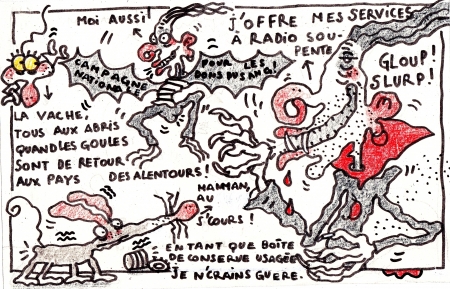 MOI AUSSI!
J'OFFRE MES SERVICES
À RADIO SOU-
PENTE
CAMPAGNE
NATIONALE
POUR LES
DONS DU SANG!
GLOUP!
SLURP!
LA VACHE,
TOUS AUX ABRIS
QUAND LES GOULES
SONT DE RETOUR
AUX PAYS
DES ALENTOURS!
MAMAN,
AU
S'COURS!
EN TANT QUE BOÎTE
DE CONSERVE USAGÉE
JE N'CRAINS GUERE.